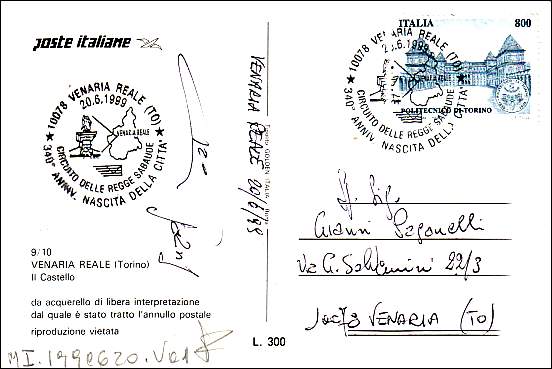 poste italiane
10078 VENARIA REALE (TO)
20.6.1999
VENARIA REALE
CIRCUITO DELLE REGGE SABAUDE
340° ANNIV. NASCITA DELLA CITTA'
9/10
VENARIA REALE (Torino)
Il Castello
da acquerello di libera interpretazione
dal quale è stato tratto l'annullo postale
riproduzione vietata
L. 300
VENARIA REALE
ITALIA 800
10078 VENARIA REALE (TO)
20.6.1999
POLITECNICO DI TORINO
CIRCUITO DELLE REGGE SABAUDE
340° ANNIV. NASCITA DELLA CITTA'
Sig.
Gianni Paganelli
Via G. Salvemini 22/3
10078 VENARIA (TO)
MI.199620.Ve1